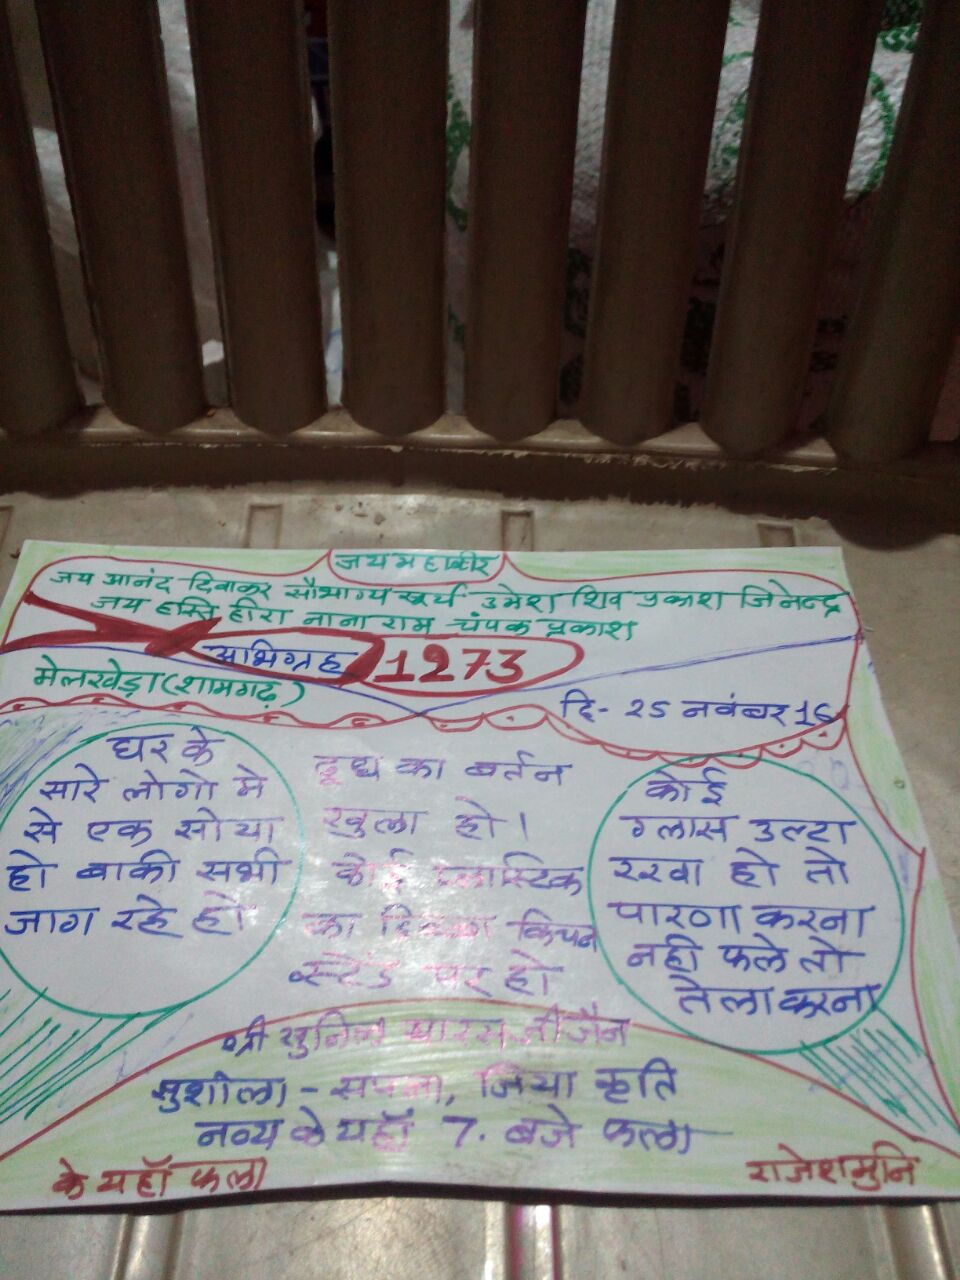 जय महावीर
जय आनंद दिवाकर सौभाग्य सूर्य उमेश शिव प्रकाश जिनेन्द्र
जय हस्ति हीरा नाना राम चंपक प्रकाश
अभिग्रह 1273
मेलखेड़ा (शामगढ़)
दि- 25 नवंबर 16
घर के
सारे लोगो मे
से एक सोया
हो बाकी सभी
जाग रहे हो
दूध का बर्तन
खुला हो।
कोई प्लास्टिक
का डिब्बा किचन
स्टेंड पर हो
कोई
ग्लास उल्टा
रखा हो तो
पारणा करना
नही फले तो
तेला करना
श्री सुनिल पारस जी जैन
सुशीला - सपना, जिया कृति
नव्य के यहाँ 7. बजे फला
के यहाँ फला
राजेशमुनि